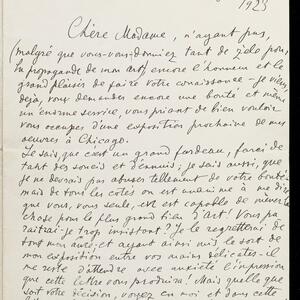 1923
Chère Madame, n'ayant pas,
(malgré que vous-vous donniez tant de zèle pour
la propagande de mon art) encore l'honneur et le
grand plaisir de faire votre connaissance – je viens,
déjà, vous demander encore une bonté et même
un énorme service, vous priant de bien vouloir
vous occuper d'une exposition prochaine de mes
œuvres à Chicago.
Je sais que c'est un grand fardeau, farci de
tant des soucis et d'ennuis; je sais aussi, que
je ne devrais pas abuser tellement de votre bonté
mais de tous les côtés on est unanime à me dire
que vous, vous seule, est capable de
chose pour le plus grand bien d'Art! Vous pa-
raîtrai-je trop insistant? Je le regretterai de
tout mon avec, et ayant ainsi mis le sort de
mon exposition entre vos mains délicates – il
me reste d'attendre avec anxiété l'impression
que cette lettre vous produira! Mais quelque que
soit votre décision, voyez en moi et dans cette